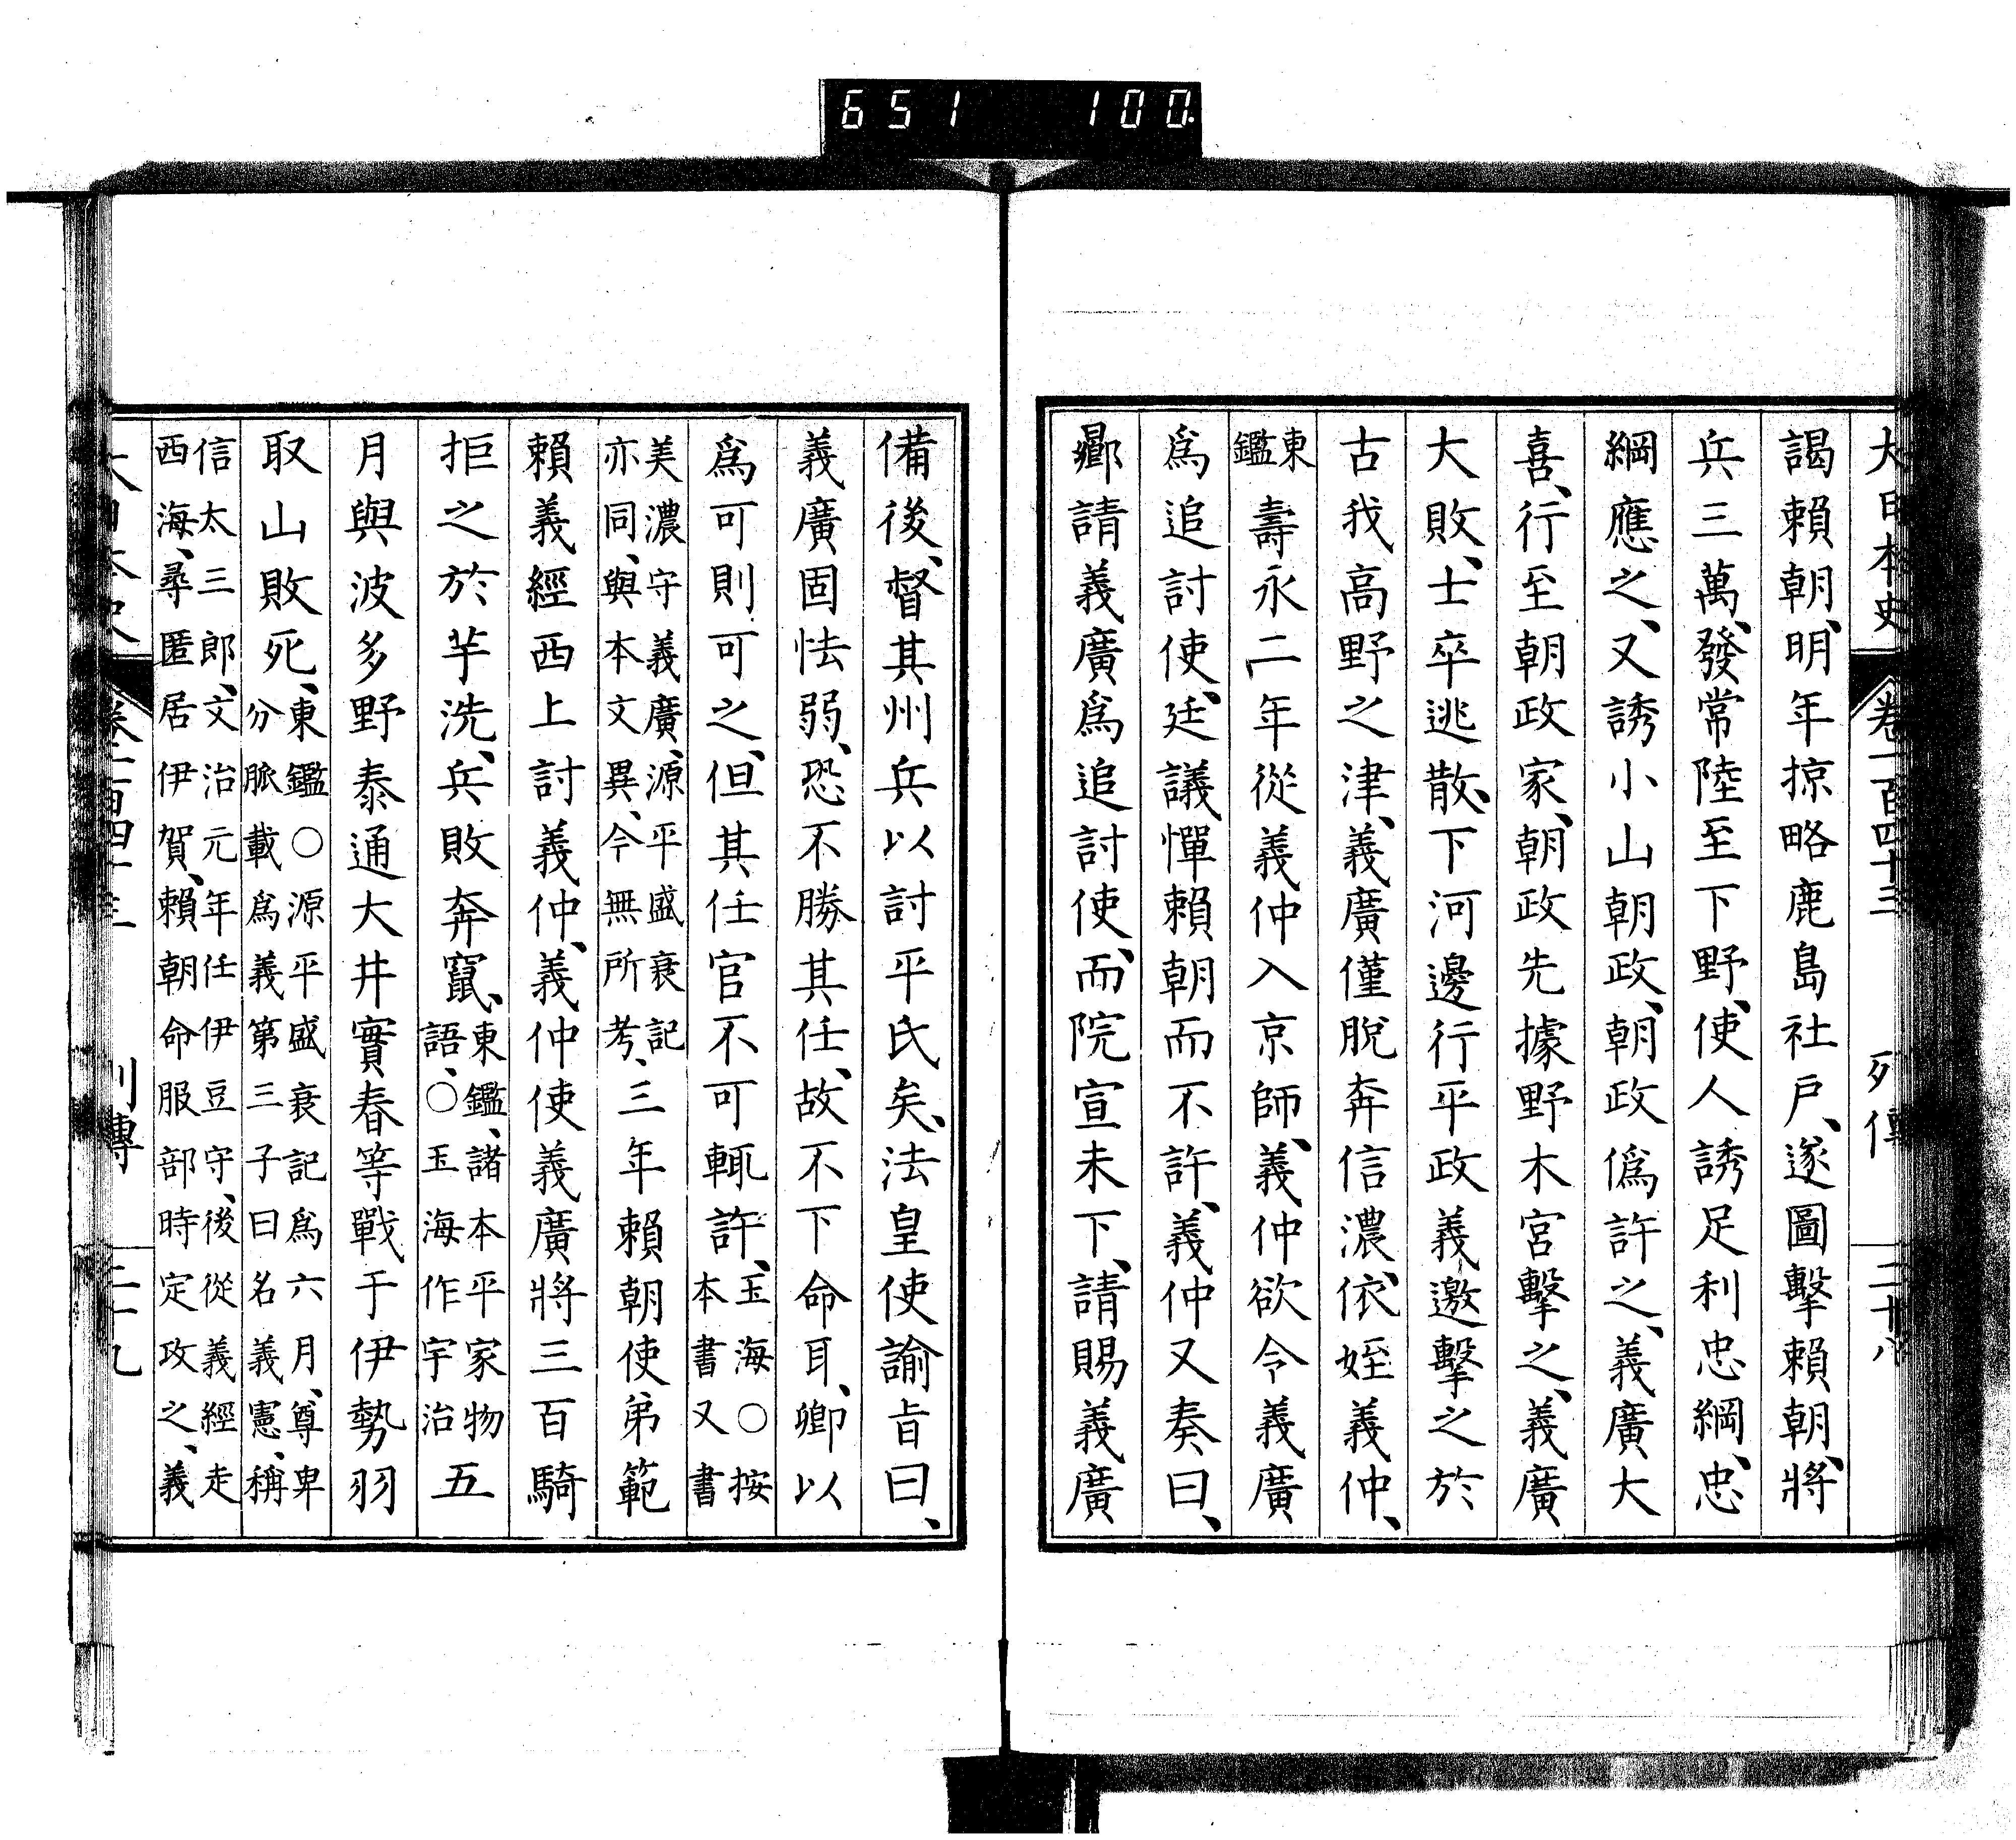 651 100
大日本史 卷一百四十三 列傳 二十八
謁賴朝、明年掠略鹿島社戸、遂圖擊賴朝、將
兵三萬、發常陸至下野、使人誘足利忠綱、忠
綱應之、又誘小山朝政、朝政僞許之、義廣大
喜、行至朝政家、朝政先據野木宮擊之、義廣
大敗、士卒逃散、下河邊行平政義邀擊之於
古我高野之津、義廣僅脫奔信濃、依姪義仲、
東鑑 壽永二年從義仲入京師、義仲欲令義廣
爲追討使、廷議憚賴朝而不許、義仲又奏曰、
曏請義廣爲追討使、而院宣未下、請賜義廣
備後、督其州兵以討平氏矣、法皇使諭旨曰、
義廣固怯弱、恐不勝其任、故不下命耳、卿以
爲可則可之、但其任官不可輒許、玉海○按本書又書
美濃守義廣、源平盛衰記亦同、與本文異、今無所考、三年賴朝使弟範
賴義經西上討義仲、義仲使義廣將三百騎
拒之於芋洗、兵敗奔竄、東鑑、諸本平家物語、○玉海作宇治五
月與波多野泰通大井實春等戰于伊勢羽
取山敗死、東鑑○源平盛衰記爲六月、尊卑分脈載爲義第三子曰名義憲、稱
信太三郎、文治元年任伊豆守、後從義經走西海、尋匿居伊賀、賴朝命服部時定攻之、義
大日本史 卷一百四十三 列傳 二十九